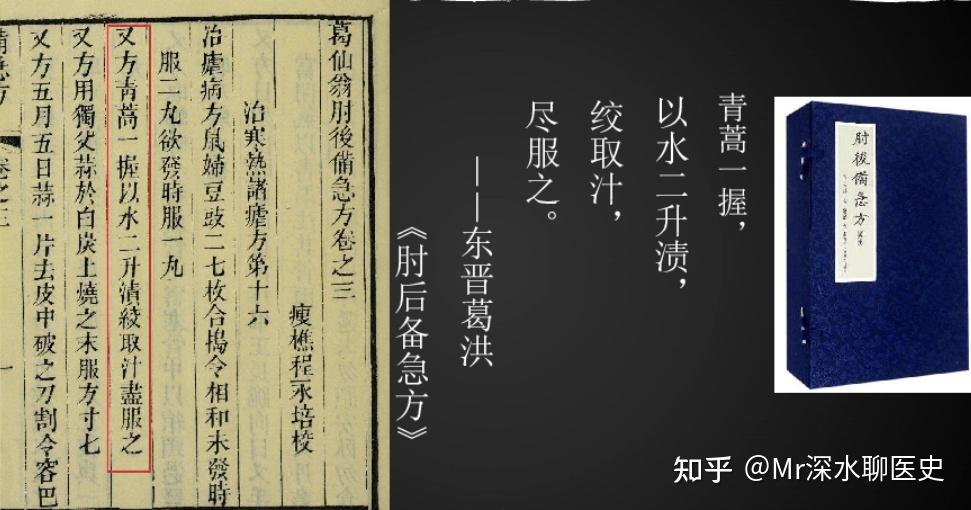 葛仙翁肘後備急方卷之三
瘦樵程永培校
治寒熱諸瘧方第十六
治瘧病方鼠婦豆豉二七枚合搗令相和未發時
服二丸欲發時服一丸
又方青蒿一握以水二升漬絞取汁盡服之
又方用獨父蒜於白炭上燒之末服方寸七
又方五月五日蒜一片去皮中破之刀割令容巴
備急方
卷之三
一
青蒿一握，
以水二升渍，
绞取汁，
尽服之。
——东晋葛洪
《肘后备急方》
肘後備急方
知乎 @Mr深水聊医史